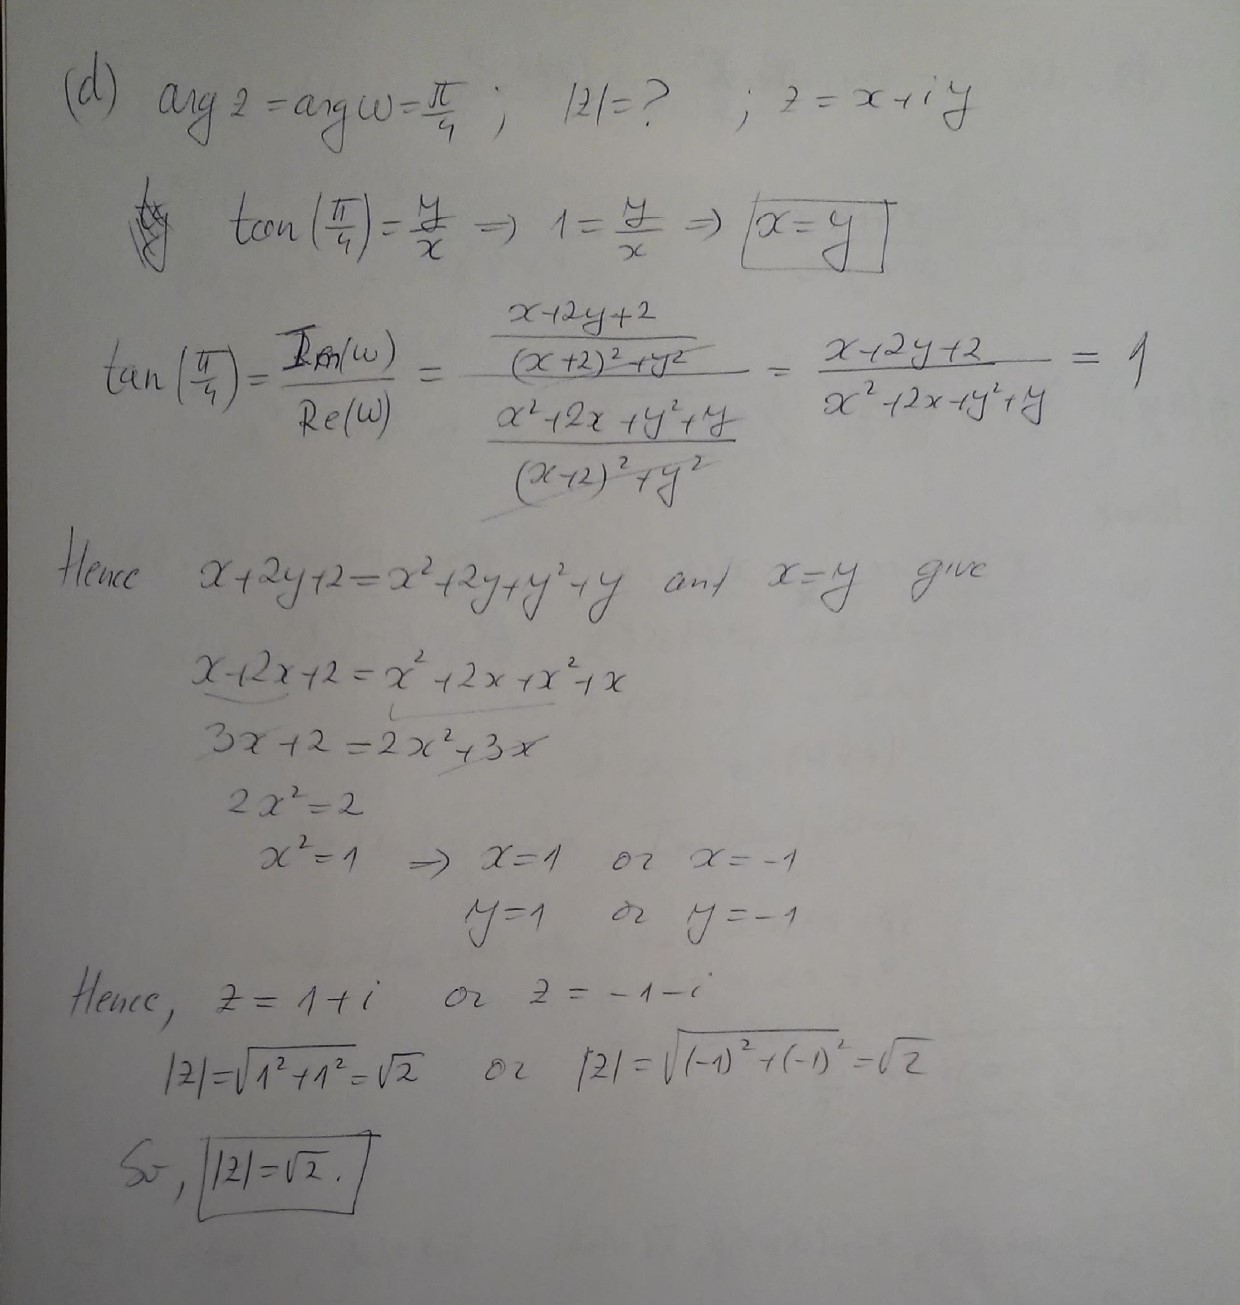 (d) arg z = arg ω = π/4 ; |z| = ? ; z = x + iy
tan(π/4) = y/x ⇒ 1 = y/x ⇒ x = y
tan(π/4) = Im(ω)/Re(ω) = ((x+2y+2)/((x+2)²+y²))/((x²+2x+y²+y)/((x+2)²+y²)) = (x+2y+2)/(x²+2x+y²+y) = 1
Hence x+2y+2 = x²+2y+y²+y and x=y give
x+2x+2 = x²+2x+x²+x
3x+2 = 2x²+3x
2x² = 2
x² = 1 ⇒ x=1 or x=-1
y=1 or y=-1
Hence, z = 1+i or z = -1-i
|z| = √(1²+1²) = √2 or |z| = √((-1)²+(-1)²) = √2
So, |z| = √2.